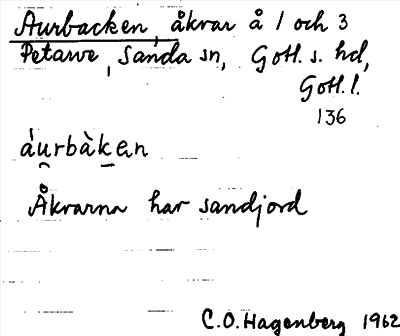 Aurbacken, åkrar å 1 och 3
Petarve, Sanda sn, Gotl. s. hd,
Gotl. l.
136
áu̯rbàkęn
Åkrarna har sandjord
C.O. Hagenberg 1962